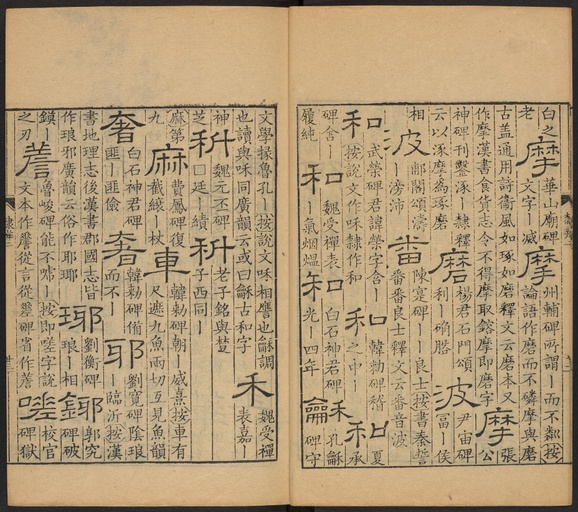 白之
老
摩
華山廟碑
文字｜滅
摩
州輔碑所謂｜而不鄰按
論語作磨而不磷摩與磨
古盖通用詩衞風如琢如磨釋文云磨本又
作摩漢書食貨志令不得摩取鎔摩即磨字
摩
張
公
神碑刊鑿涿｜隸釋
云以涿摩為琢磨
磨
楊君石門頌
利｜确
波
尹宙碑
冨｜侯
相
波
郙閣頌濤
｜滂沛
番
陳寔碑｜｜良士按書秦誓
番番良士釋文云番音波
和
武榮碑君諱榮字含｜
按說文作咊隸作和
和
韓勑碑稽
之中｜
和
夏
承
碑含｜
履純
和
魏受禪表
｜氣烟熅
和
白石神君碑
光｜四年
龢
孔龢
碑守
文學掾魯孔｜按說文咊相譍也龢調
也讀與咊同廣韻云或曰龢古和字
禾
魏受禪
表嘉｜
神
芝
科
魏元丕碑
｜廷｜績
科
老子銘與楚
子西同｜
麻第
九
麻
費鳳碑復
截縗｜杖
車
韓勑碑朝｜威熹按車有
尺遮九魚兩切互見魚韻
奢
白石神君碑
匪｜匪儉
奢
韓勑碑備
而不｜
耶
劉寬碑陰琅
｜臨沂按漢
書地理志後漢書郡國志皆
作琅邪廣韻云俗作耶瑘
瑘
劉衡碑
琅｜相
鎁
郭究
碑破
鏌｜
之刃
魯峻碑能不嘑｜按即嗟字說
嗟
校官
碑獄